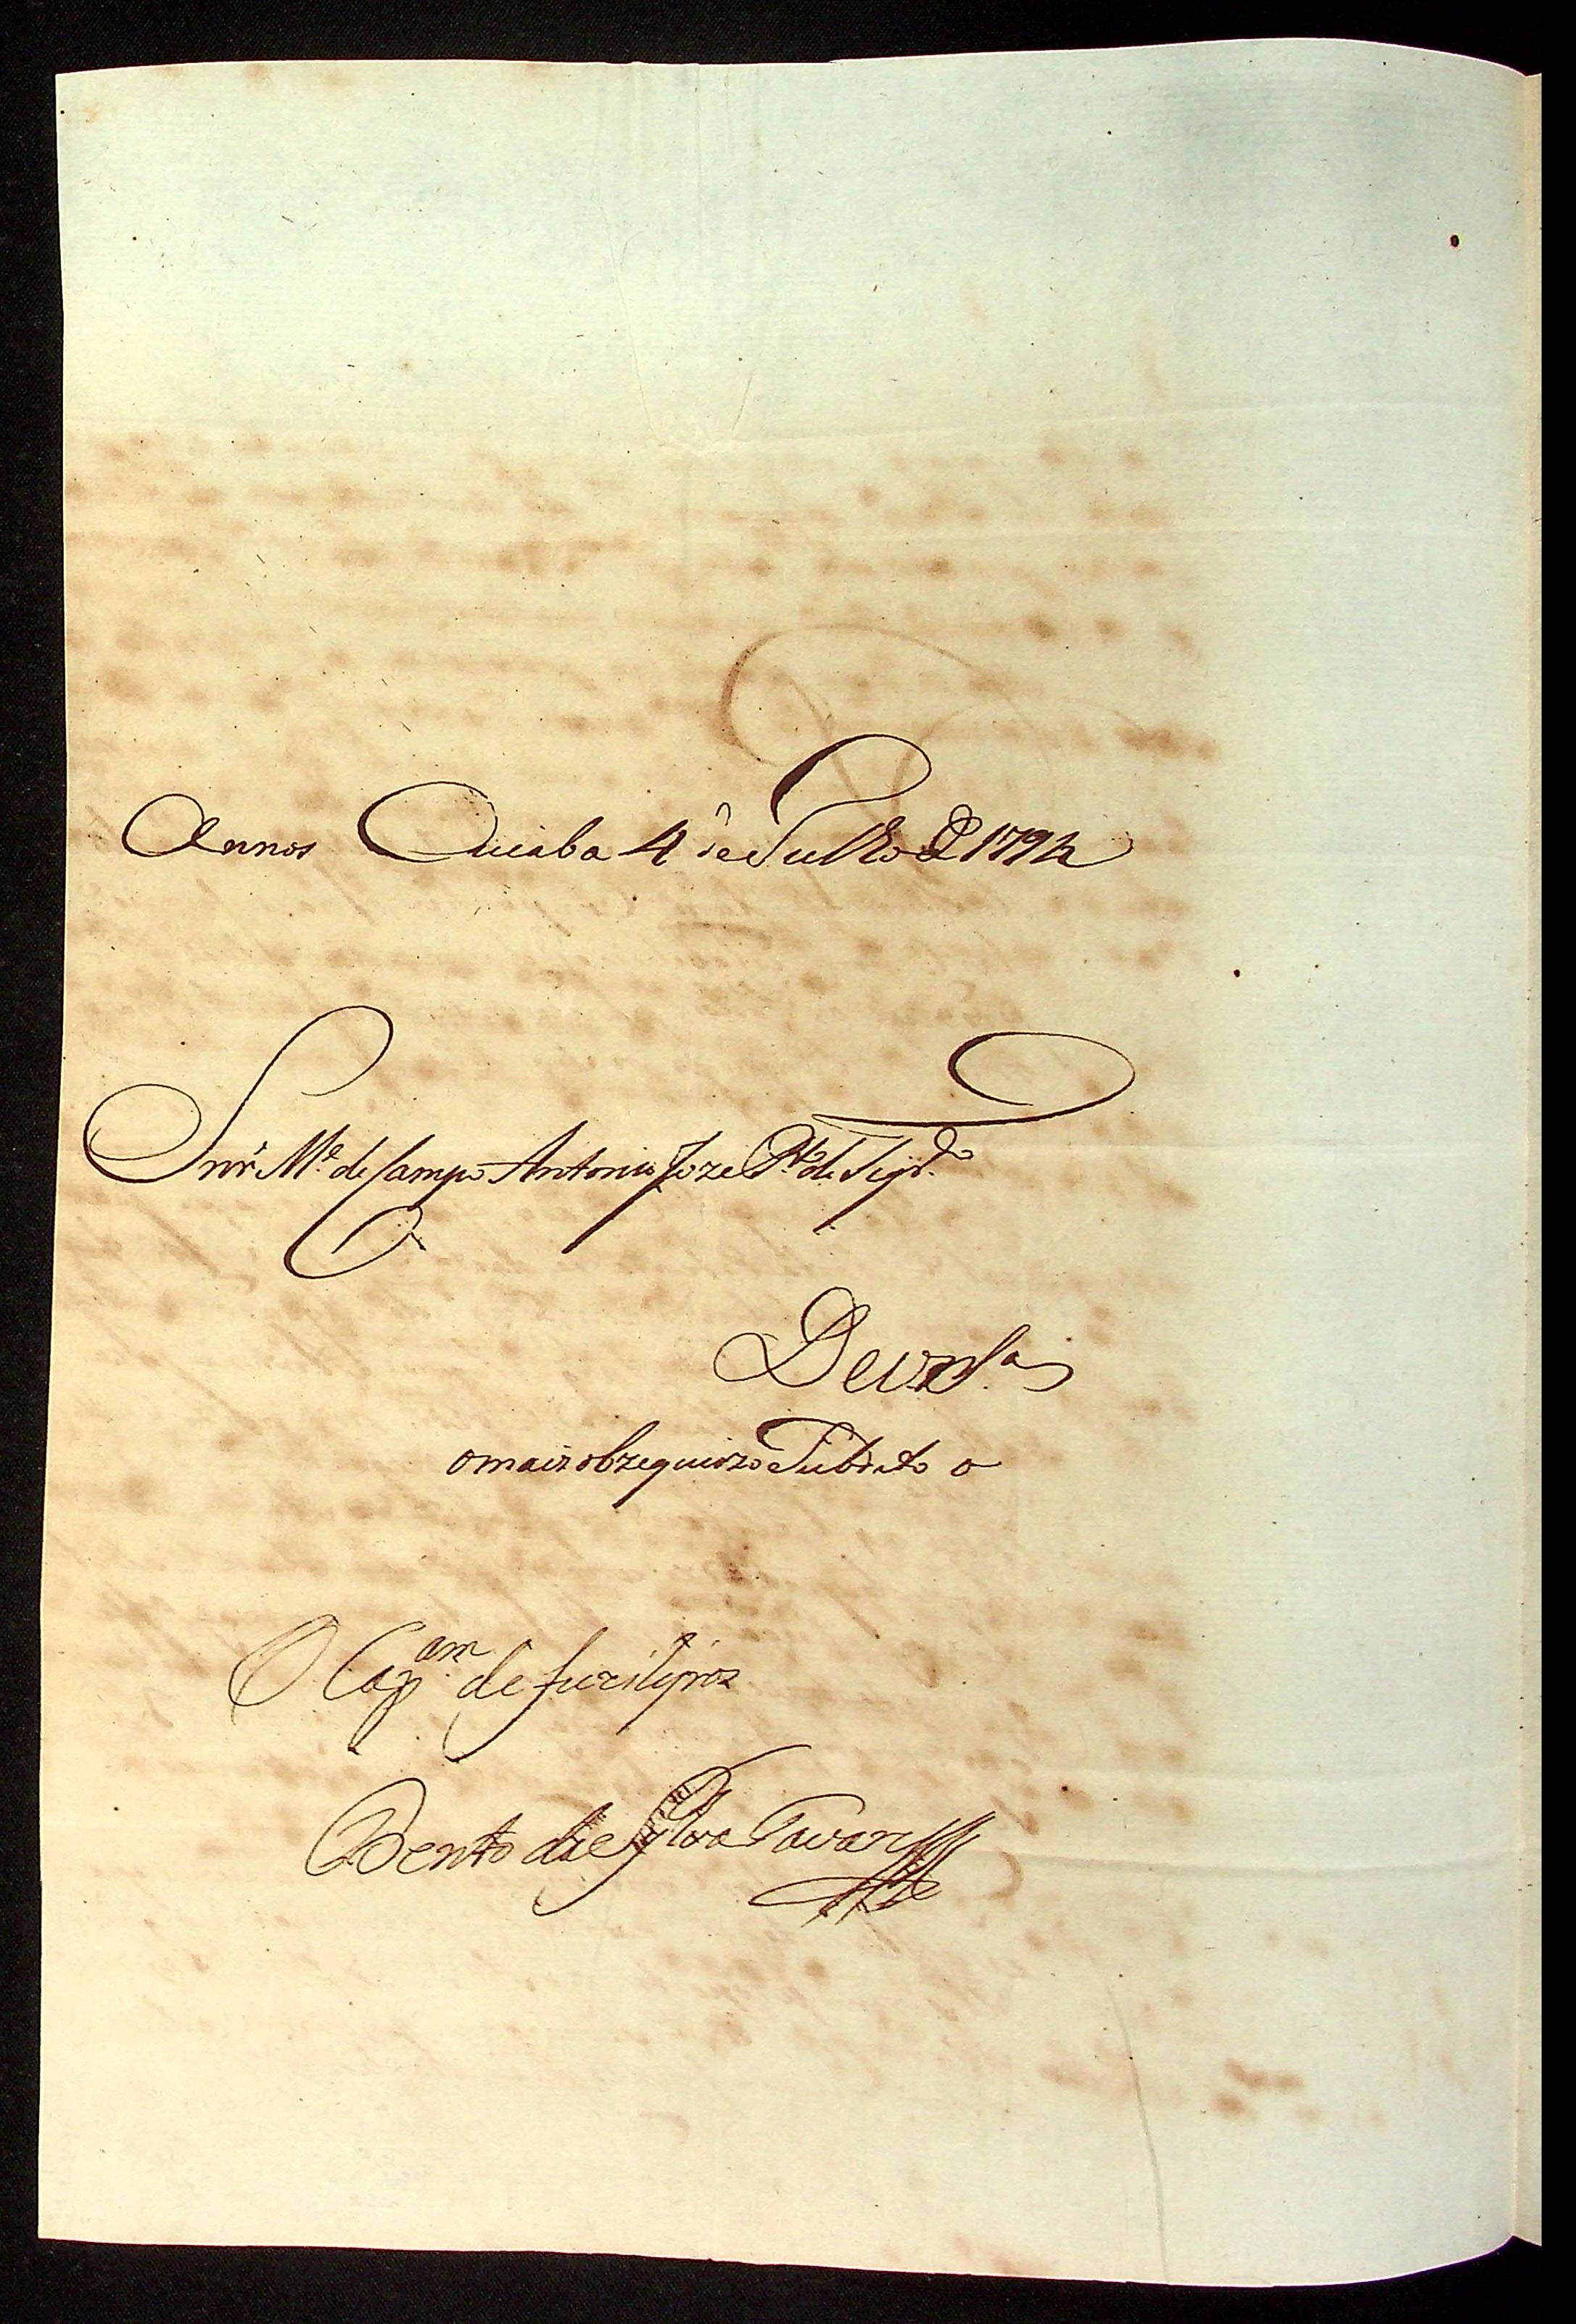 Annos Cuiaba 4 de Julho de 1792
Snr. Me. de Campo Antonio Joze Pto. de Figdo.
De V. Sa.
o mais obzequiozo Subdito o
O Capam. de fuzileiros
Bento da Sylva Tavares